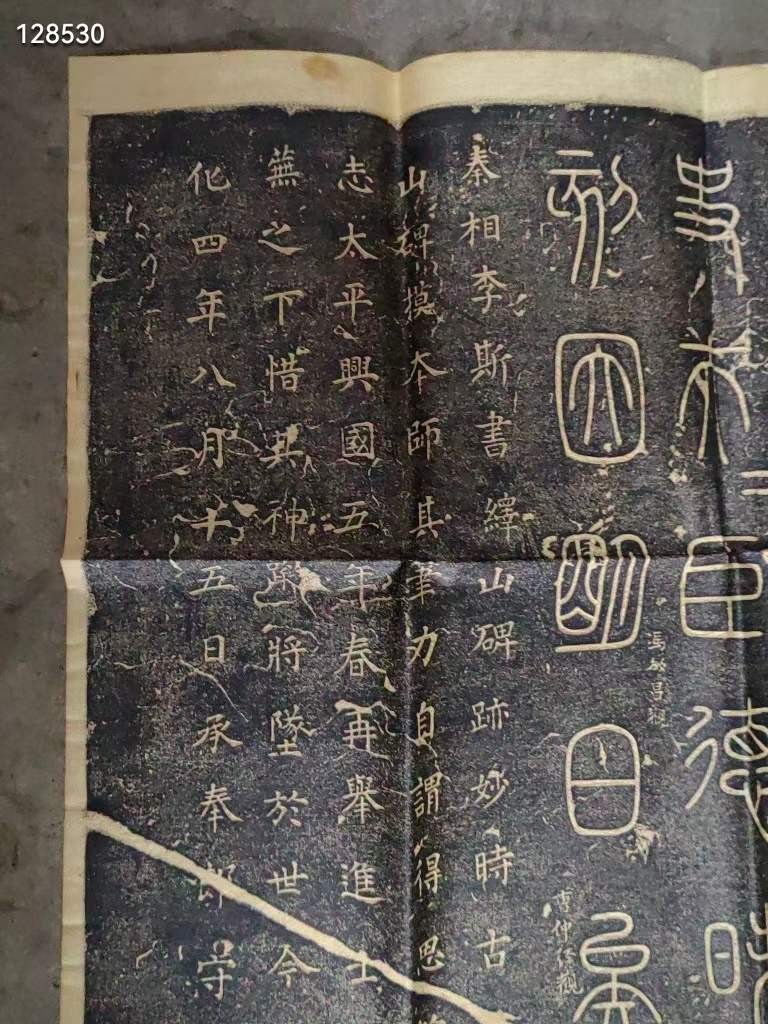 128530
史夫二臣德昧
刻因明白矣
馮敏昌觀
秦相李斯書繹山碑跡妙時古
山碑摸本師其筆力自謂得思
志太平興國五年春再舉進士
蕪之下惜其神蹤將墜於世今
化四年八月十五日承奉郎守